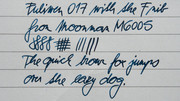 Pelinon 017 with the F nib
from Moonman M600S
The quick brown fox jumps
over the lazy dog.